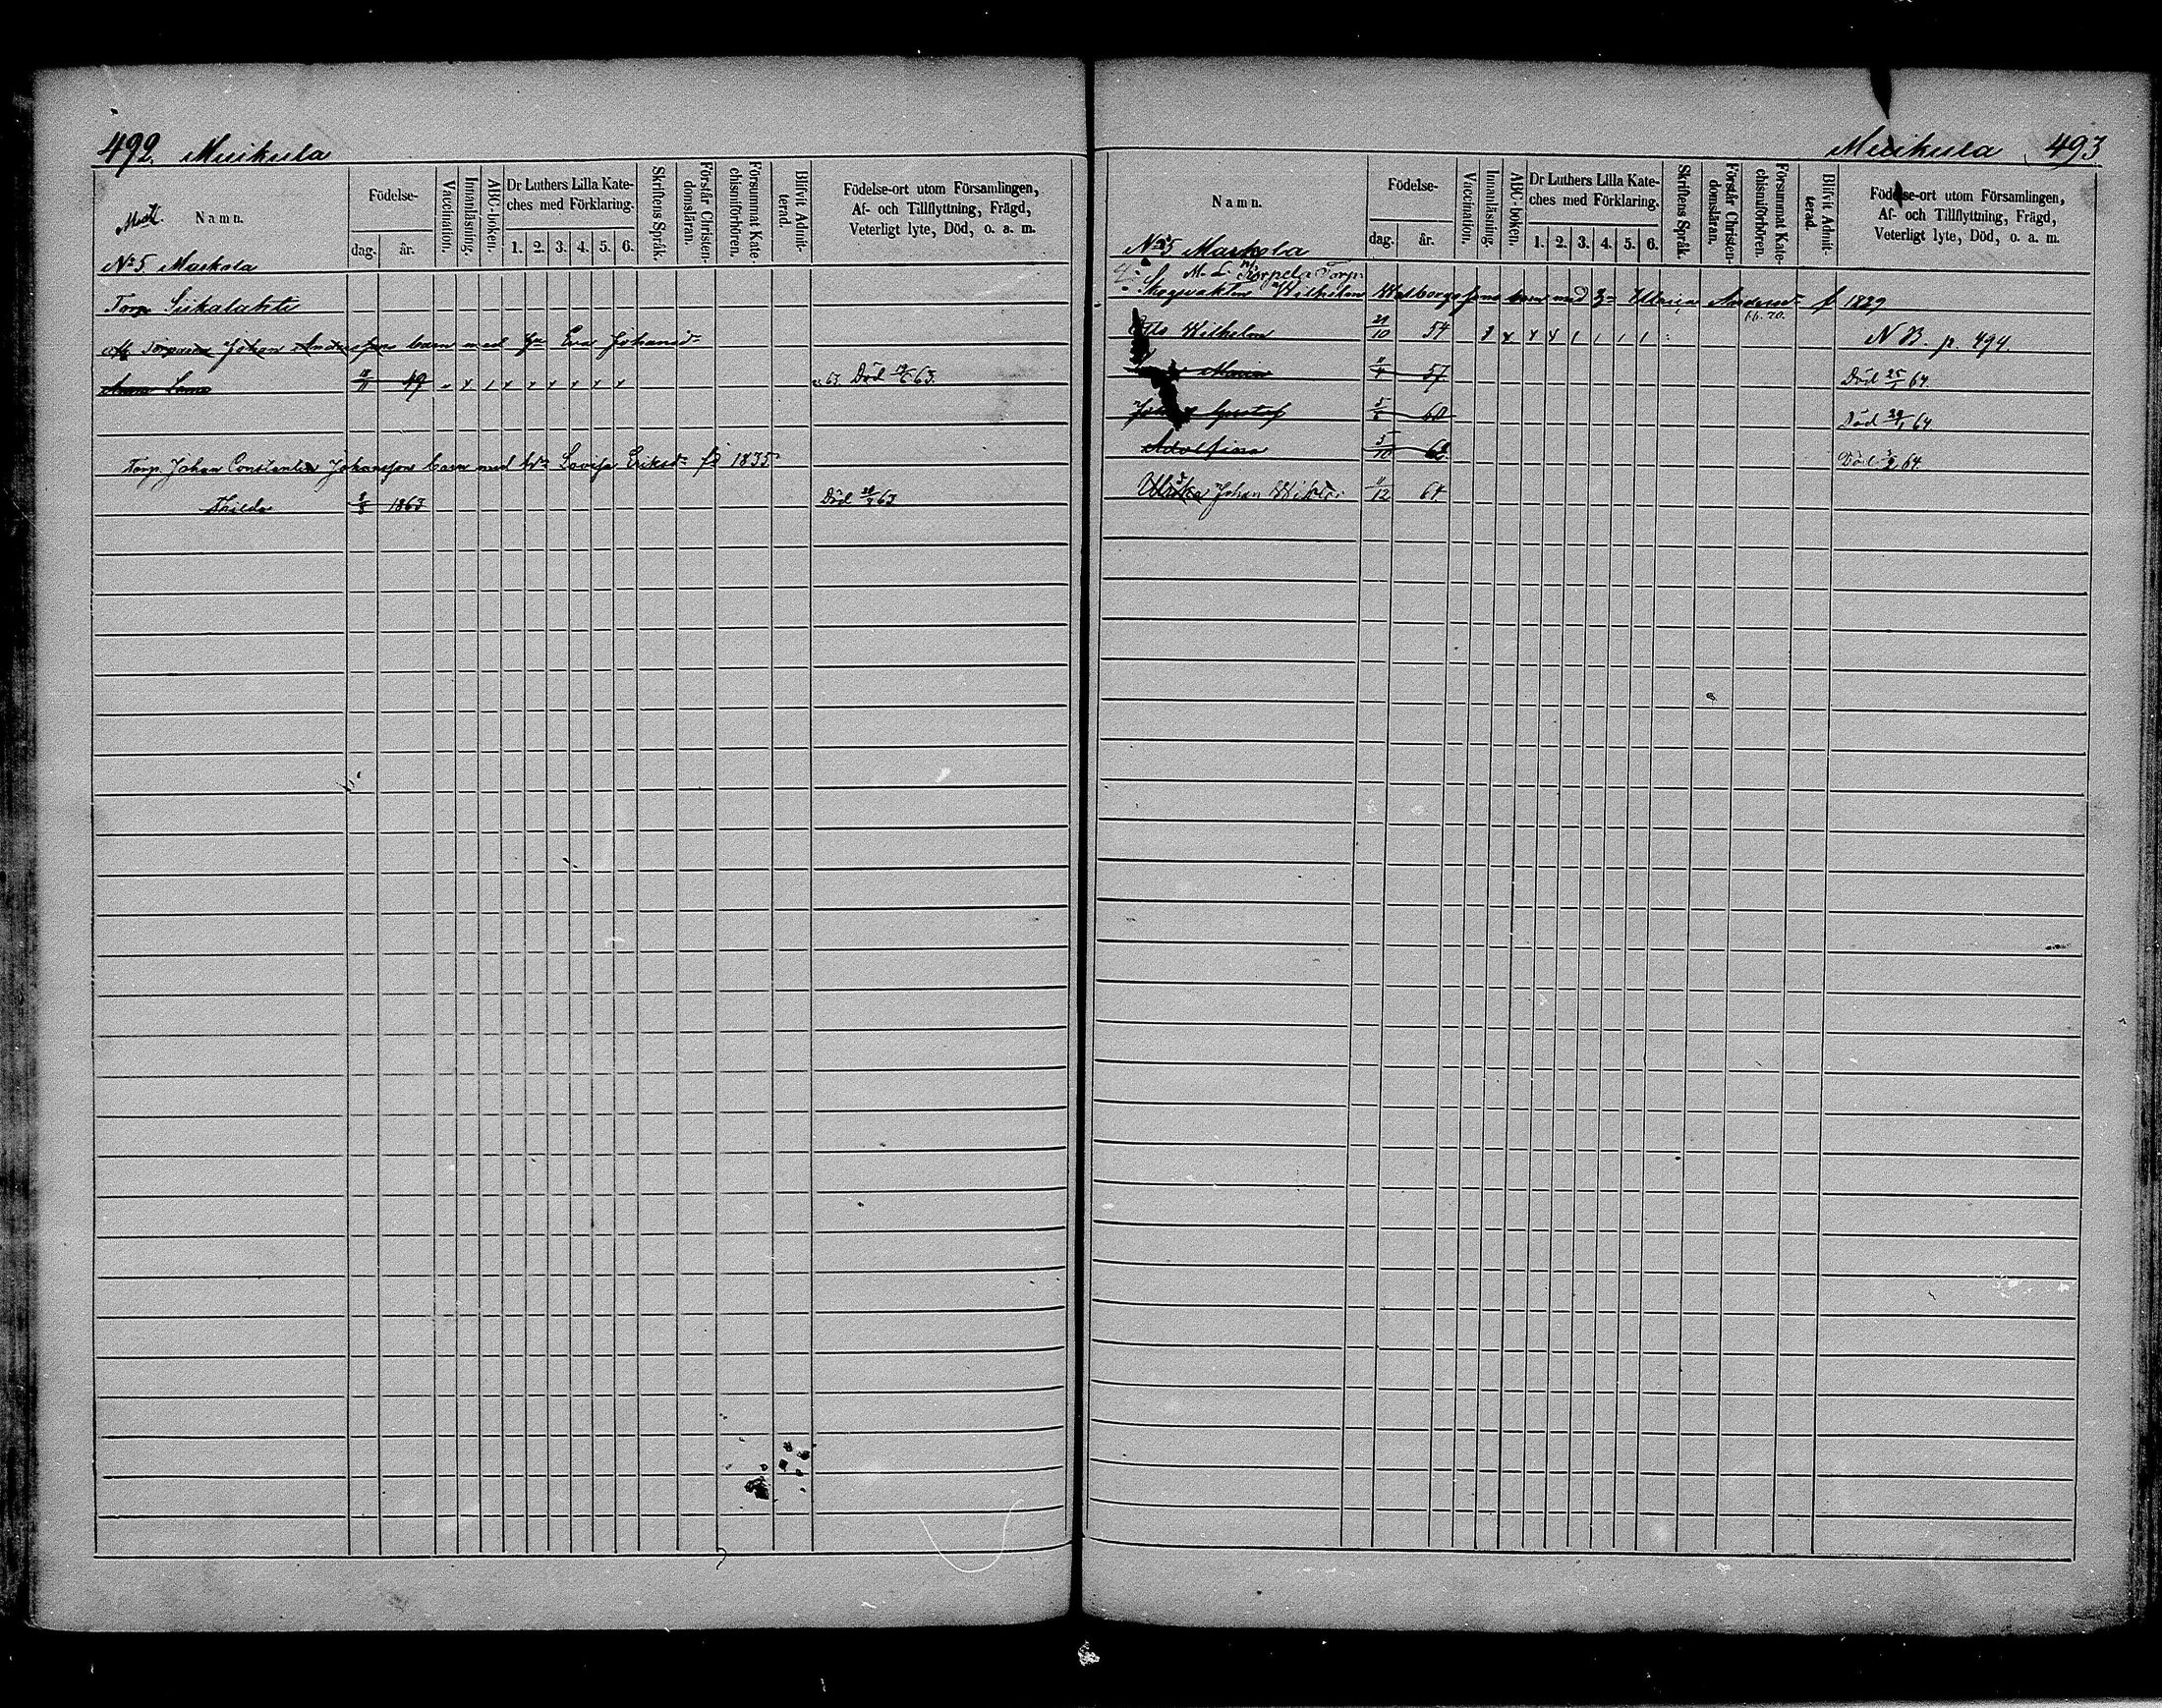 492. Muikula
Namn.
Födelse-
dag. år.
Vaccination.
Innanläsning.
ABC-boken.
Dr Luthers Lilla Kate-
ches med Förklaring.
1. 2. 3. 4. 5. 6.
Skriftens Språk.
Förstår Christen-
domsläran.
Försummat Kate-
chismiförhören.
Blifvit Admit-
terad.
Födelse-ort utom Församlingen,
Af- och Tillflyttning, Frägd,
Veterligt lyte, Död, o. a. m.
No 5 Maskola
Torp Siikalahti
Torparen Johan Anderssons barn med Eva Johansd:
Lena 49 63. Död 63.
Torp. Johan Constantin Johanssons barn med Lovisa Eriksd: 1835
Thilda 1863 Död 63
Muikula 493
Namn.
Födelse-
dag. år.
Vaccination.
Innanläsning.
ABC-boken.
Dr Luthers Lilla Kate-
ches med Förklaring.
1. 2. 3. 4. 5. 6.
Skriftens Språk.
Förstår Christen-
domsläran.
Försummat Kate-
chismiförhören.
Blifvit Admit-
terad.
Födelse-ort utom Församlingen,
Af- och Tillflyttning, Frägd,
Veterligt lyte, Död, o. a. m.
No 5 Maskola
Korpela Torp.
Skogvakten Wilhelm barn med Andersd: f 1829
66. 70.
Otto Wilhelm 29/10 54 N B. p. 494.
Maria 57 Död 25/1 64.
Johan Gustaf 60 Död 29/1 64
Adolfina 5/10 62 Död 64.
Ulrika Johan Wiktor 11/12 64